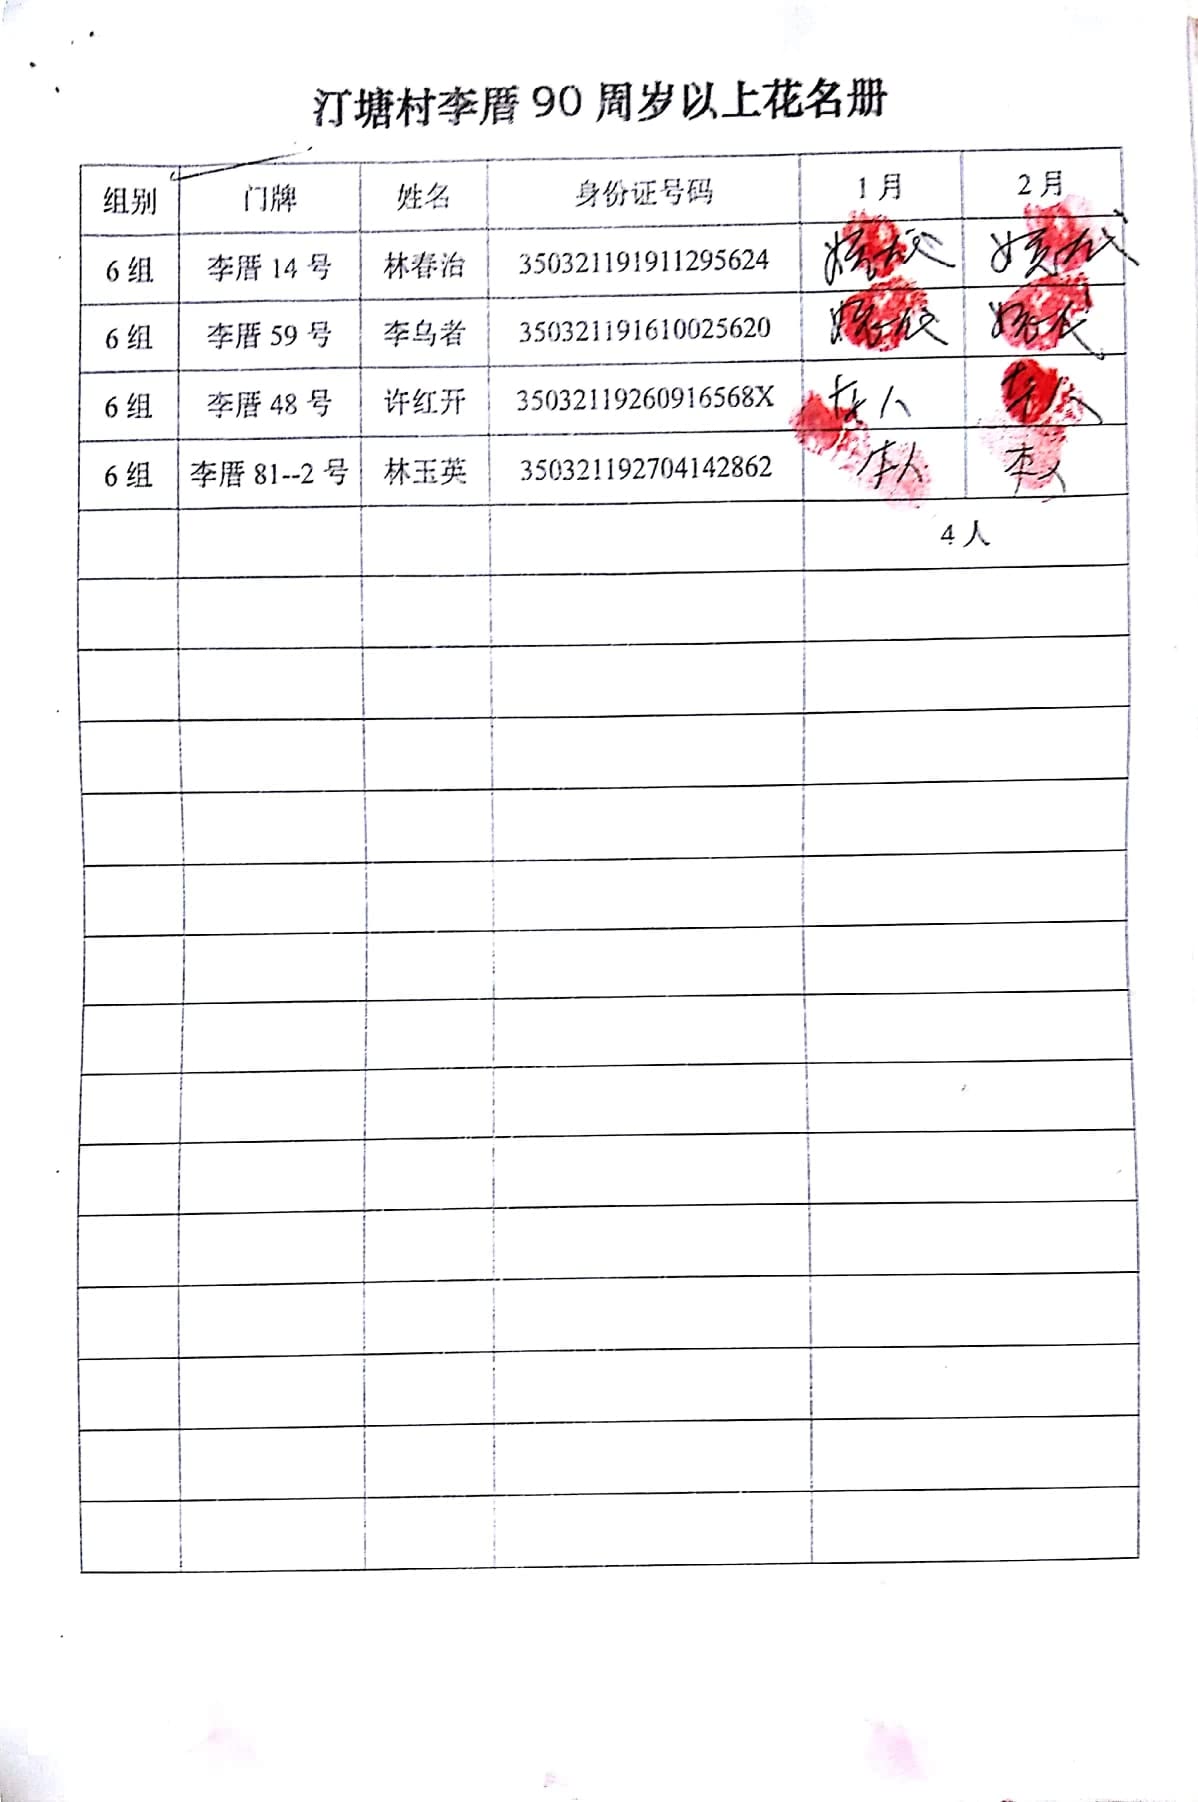 汀塘村李厝 90 周岁以上花名册
组别 门牌 姓名 身份证号码 1 月 2 月
6 组 李厝 14 号 林春治 350321191911295624 媳代 媳代
6 组 李厝 59 号 李乌者 350321191610025620 媳代 媳代
6 组 李厝 48 号 许红开 35032119260916568X 本人 本人
6 组 李厝 81--2 号 林玉英 350321192704142862 本人 本人
4 人